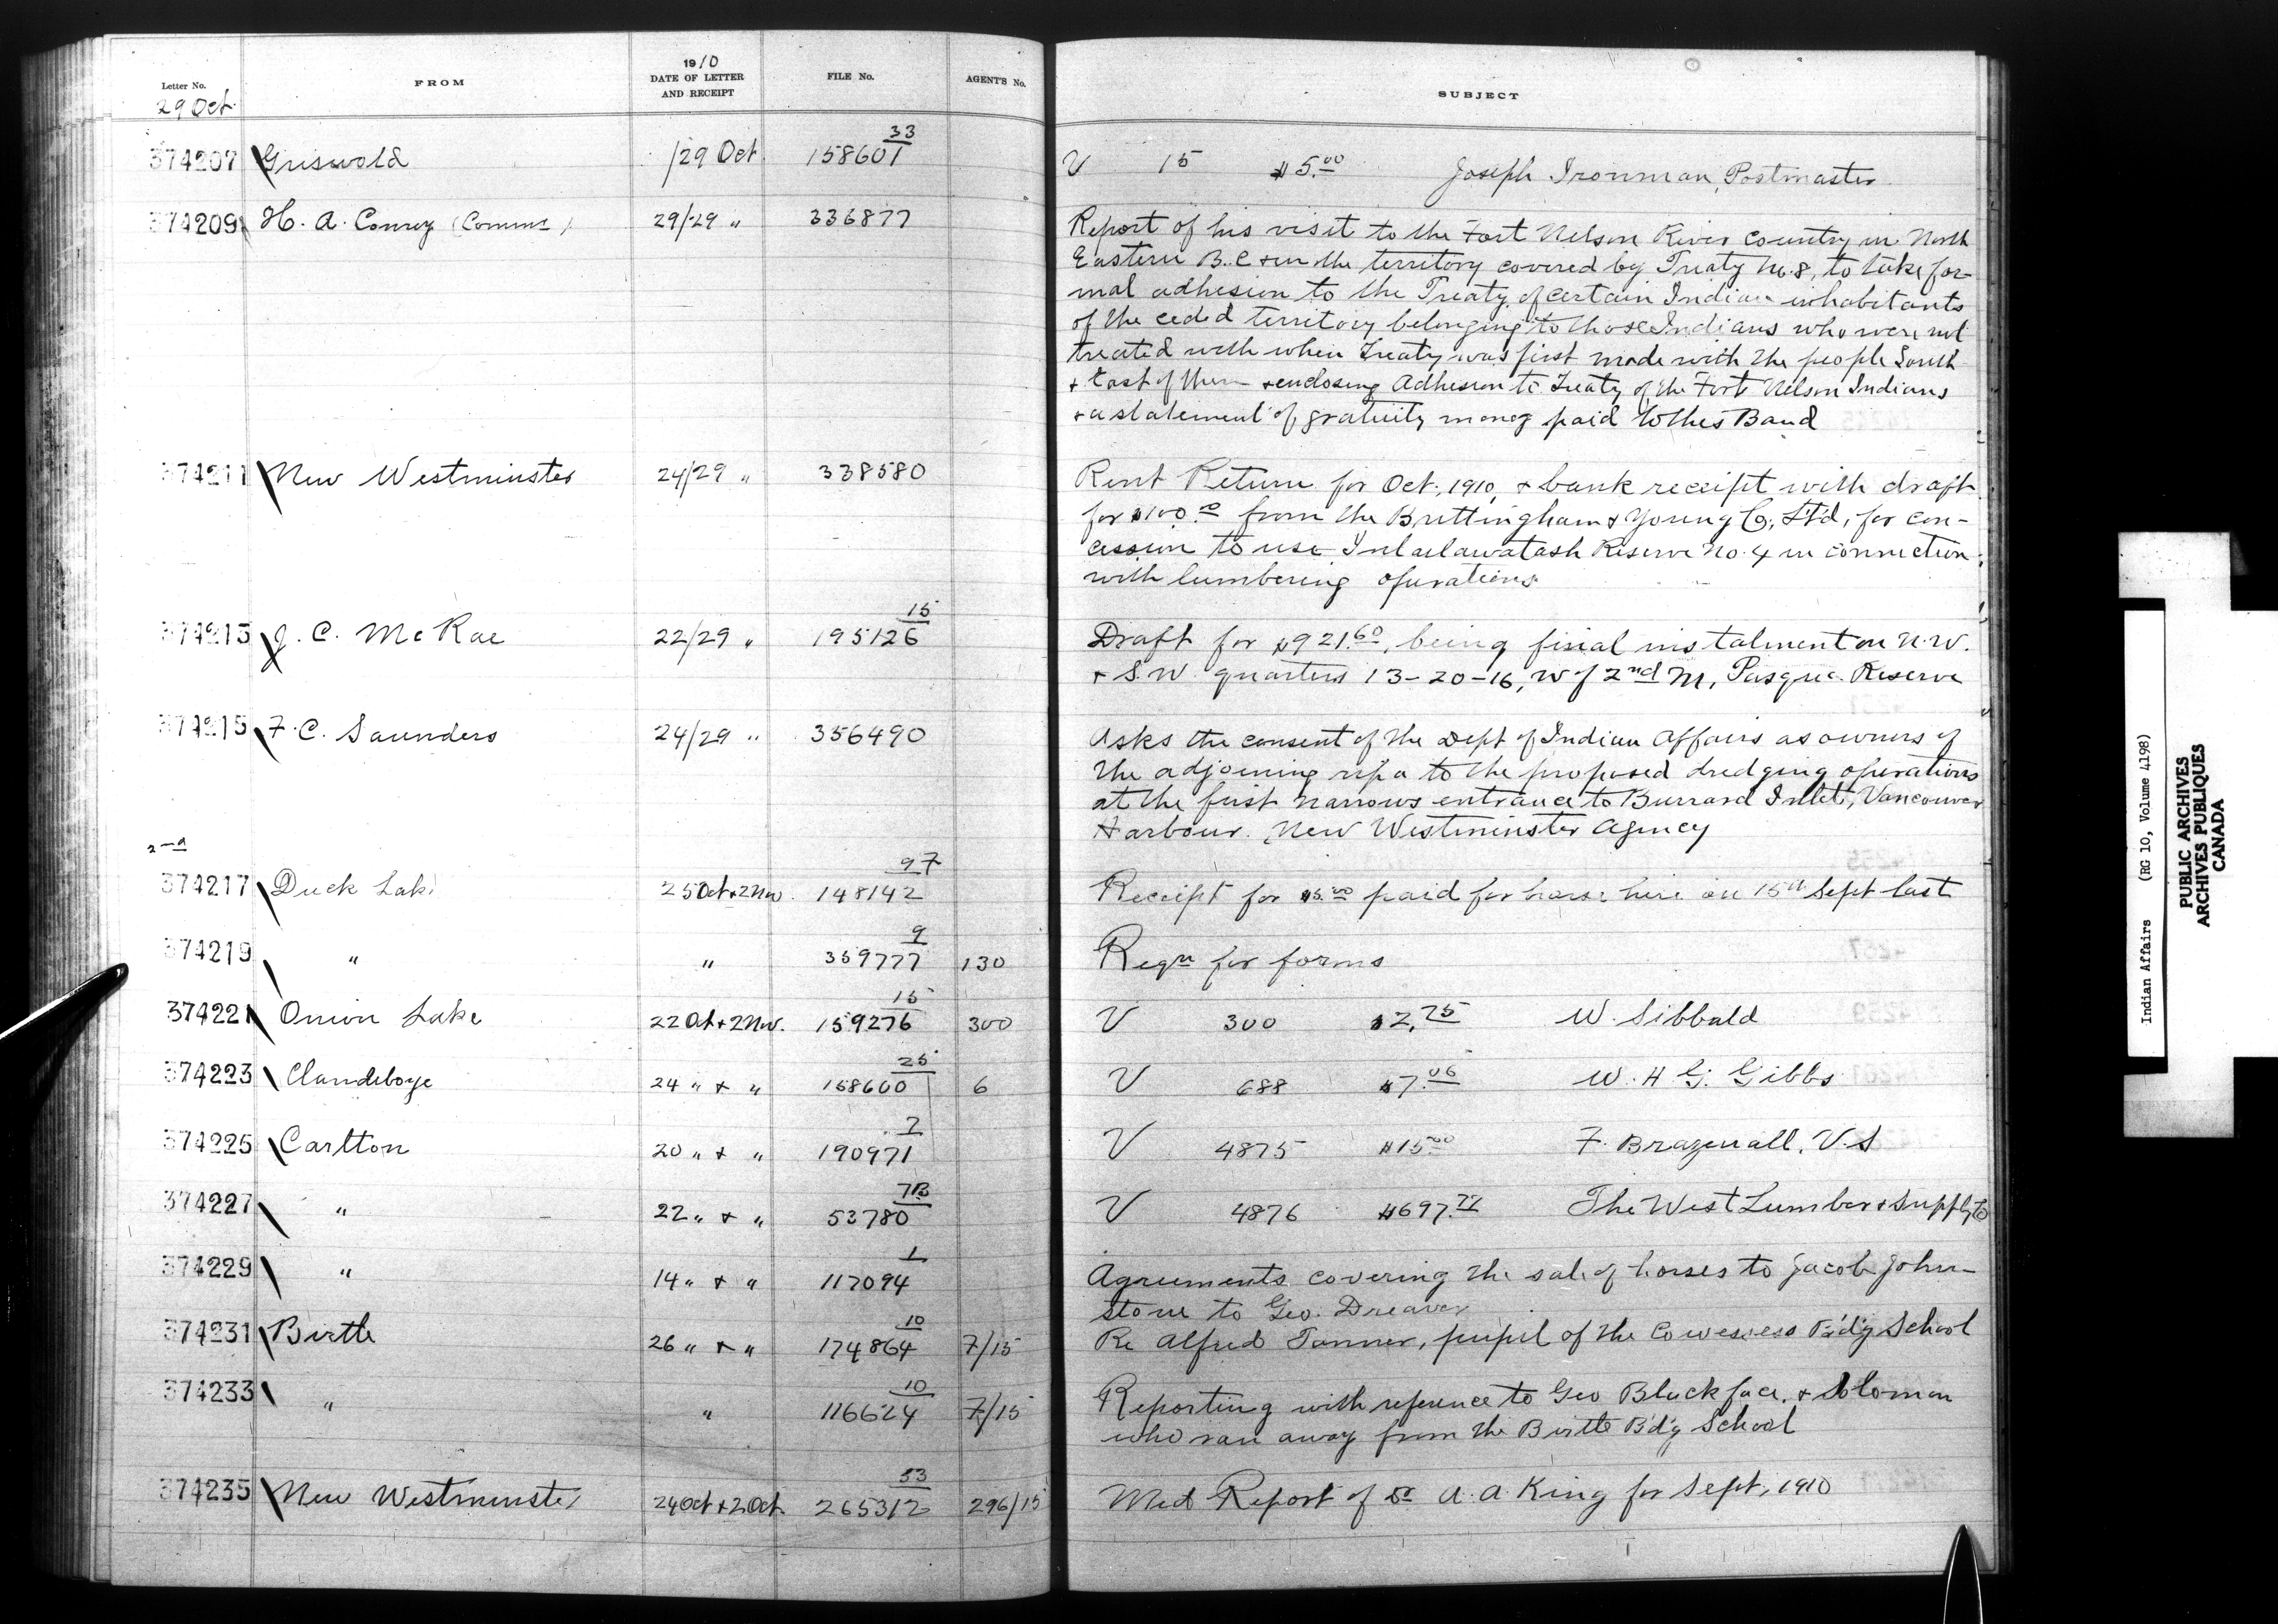 Letter No. FROM 1910 DATE OF LETTER AND RECEIPT FILE No. AGENT'S No. SUBJECT
29 Oct
374207 Griswold /29 Oct. 33 158601 V 15 $5.00 Joseph Ironman, Postmaster
374209 H. A. Conroy (Commr) 29/29 " 336877 Report of his visit to the Fort Nelson River Country in North
Eastern B.C & in the territory covered by Treaty No. 8, to take for-
mal adhesion to the Treaty of certain Indian inhabitants
of the ceded territory belonging to those Indians who were not
treated with when Treaty was first made with the people South
& East of them & enclosing Adhesion to Treaty of the Fort Nelson Indians
& a statement of gratuity money paid to this Band
374211 New Westminster 24/29 " 338580 Rent Return for Oct., 1910, & bank receipt with draft
for $100.00 from the Brettingham & Young Co, Ltd, for con-
cession to use Inlailawatash Reserve No. 4 in connection
with lumbering operations
374213 J. C. McRae 22/29 " 15 195126 Draft for $921.60, being final instalment on N.W.
& S.W. quarters 13-20-16, W of 2nd M, Pasqua Reserve
374215 F. C. Saunders 24/29 " 356490 Asks the consent of the Dept of Indian Affairs as owners of
the adjoining to the proposed dredging operations
at the first narrows entrance to Burrard Inlet, Vancouver
Harbour. New Westminster Agency
2nd
374217 Duck Lake 25 Oct & 2 Nov. 97 148142 Receipt for $5.00 paid for horse hire on 15th Sept last
374219 " " 9 359777 130 Reqn for forms
374221 Onion Lake 22 Oct & 2 Nov. 15 159276 300 V 300 $2.75 W. Sibbald
374223 Clandeboye 24 " & " 25 158600 6 V 688 $7.06 W. H G. Gibbs
374225 Carlton 20 " & " 7 190971 V 4875 $15.00 F. Brazenall, V.S
374227 " 22 " & " 7B 53780 V 4876 $697. The West Lumber & Supply Co
374229 " 14 " & " 1 117094 Agreements covering the sale of horses to Jacob John-
stone to Geo. Dreaver
374231 Birtle 26 " & " 10 174864 7/15 Re Alfred Tanner, pupil of the Cowesess B'd'g School
374233 " " 10 116624 7/15 Reporting with reference to Geo Blackface & Solomon
who ran away from the Birtle B'd'g School
374235 New Westminster 24 Oct & 2 Oct. 53 265312 296/15 Med Report of Dr A. A. King for Sept, 1910
Indian Affairs (RG 10, Volume 4198)
PUBLIC ARCHIVES
ARCHIVES PUBLIQUES
CANADA